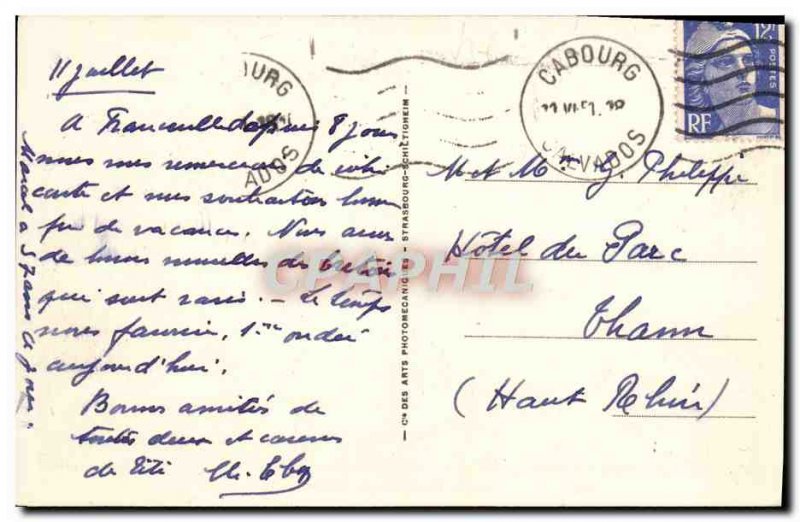 11 juillet
A Franceville depuis 8 jours
nous vous remercions de votre
carte et vous souhaitons bonne
fin de vacances. Nous avons
de bonnes nouvelles des bretons
qui sont ravis. - Le temps
nous favorise, 1ère ondée
aujourd'hui.
Bonnes amitiés de
toutes deux et caresses
de Titi
Marcel a 5 jours
CABOURG
CALVADOS
CABOURG
CALVADOS
12F
POSTES
RF
M et Mme G. Philippe
Hôtel du Parc
Thann
(Haut Rhin)
Cie DES ARTS PHOTOMECANIQUES - STRASBOURG-SCHILTIGHEIM
CPAPHIL